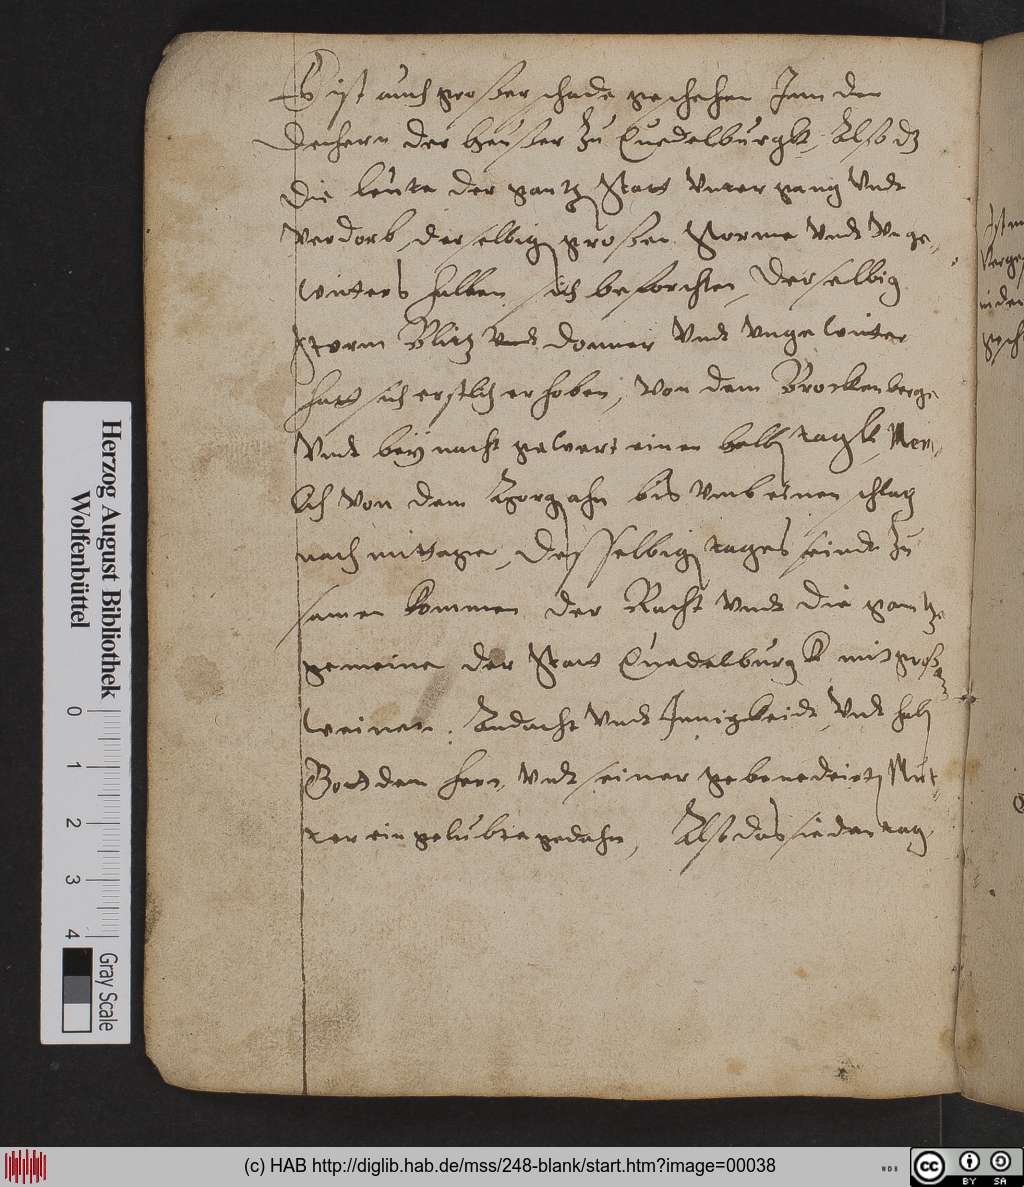 Es ist auch großer schade geschehen Inn den
Dechern der heußer zu Quedelburgk, Also dz
die leute der gantz Statt Unter gang Undt
Verdorb, derselbig großen Storme Undt Unge„
witters halben sich beforchten, Derselbig
Storm Blitz Undt donner Undt Ungewitter
hatt sich erstlich erhoben, Von dem Brockenberge
Undt bey nacht gelvert einen halb tagk, Nem„
lich Von dem Morg ahn bis Umb einen schlag
nach mittage, Desselbig tages seindt zu
samen kommen der Racht Undt die gantze
gemeine der Statt Quedelburgk mit groß
weinen. Andacht Undt Innigkeidt, Undt hab
Gott den hern, Undt seiner gebenedeiet Mut„
ter ein gelubte gedahn, Also das sie den tag
Herzog August Bibliothek
Wolfenbüttel
0 1 2 3 4
Gray Scale
(c) HAB http://diglib.hab.de/mss/248-blank/start.htm?image=00038
WDB
CC BY SA